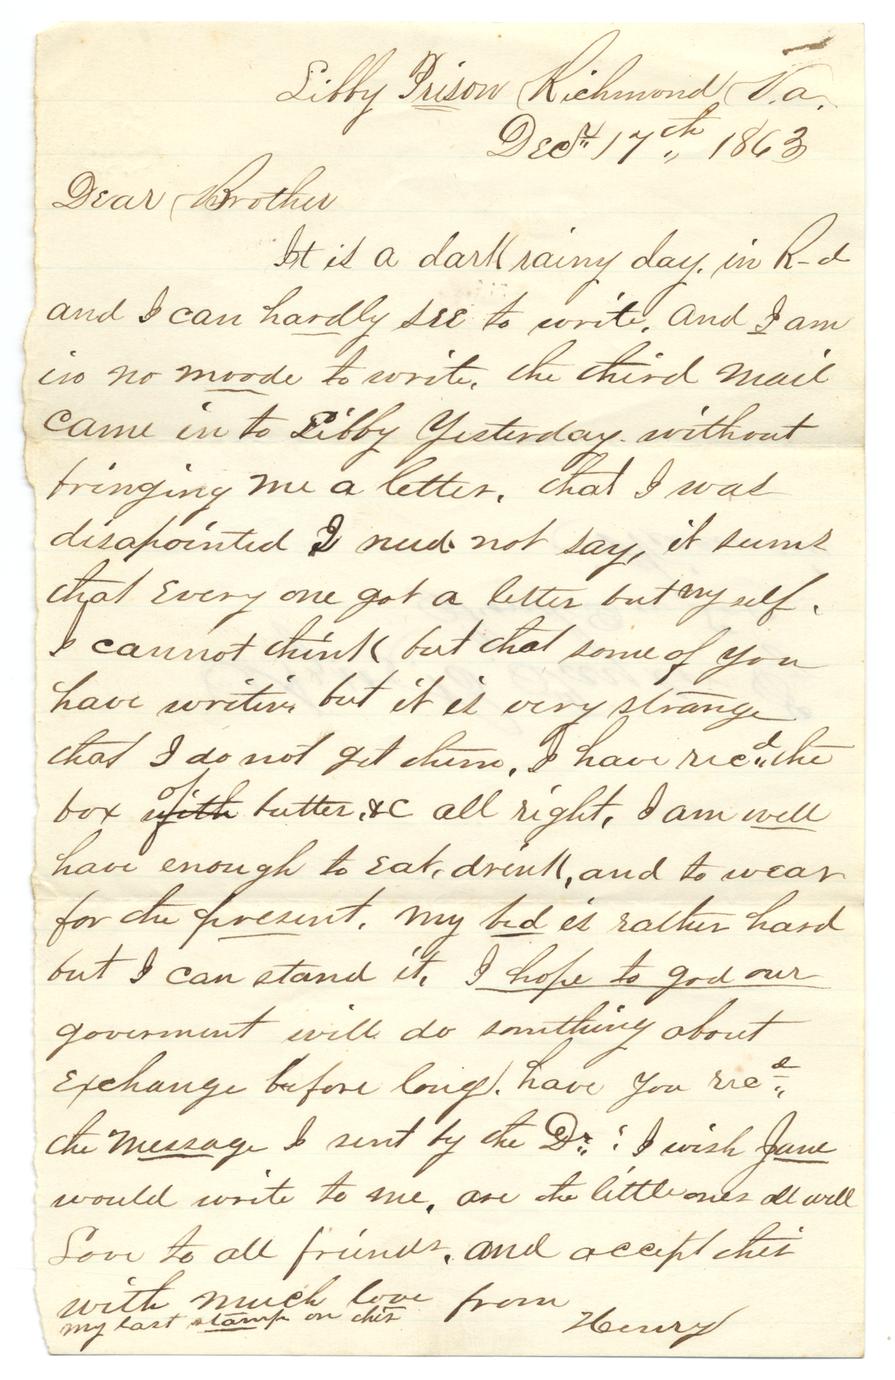 Libby Prison Richmond Va.
Decr 17th 1863
Dear Brother
It is a dark rainy day. in R-d
and I can hardly see to write. and I am
in no moode to write. the third mail
came in to Libby Yesterday. without
bringing me a letter. that I was
disapointed I need not say, it seems
that every one got a letter but my self.
I cannot think but that some of you
have writin but it is very strange
that I do not get them. I have recd the
box with of butter, &c all right. I am well
have enough to eat, drink, and to wear
for the present. my bed is rather hard
but I can stand it. I hope to god our
goverment will do something about
exchange before long. have you recd
the message I sent by the Dr: I wish Jane
would write to me. are the little ones all well
Love to all friends. and accept this
with much love from
my last stamp on this
Henry